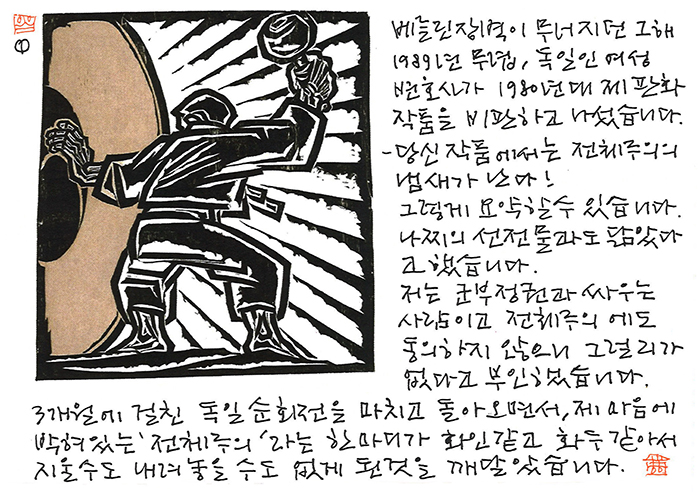 베를린장벽이 무너지던 그해
1989년 무렵, 독일인 여성
변호사가 1980년대 제 판화
작품을 비판하고 나섰습니다.
-당신 작품에서는 전체주의의
냄새가 난다!
그렇게 요약할 수 있습니다.
나찌의 선전물과도 닮았다
고 했습니다.
저는 군부정권과 싸우는
사람이고 전체주의에도
동의하지 않으니 그럴리가
없다고 부인했습니다.
3개월에 걸친 독일 순회전을 마치고 돌아오면서, 제 마음에
박혀있는 '전체주의'라는 한마디가 화인같고 화두같아서
지울수도 내려놓을 수도 없게 된것을 깨달았습니다.